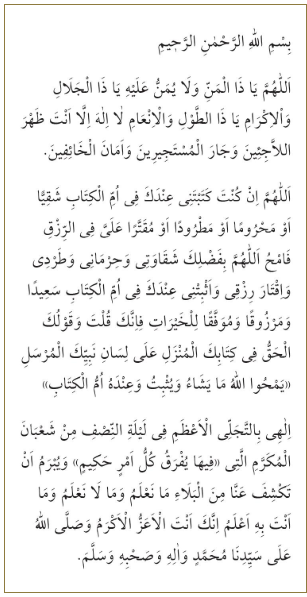 بِسْمِ اللهِ الرَّحْمٰنِ الرَّحِيمِ
اَللّٰهُمَّ يَا ذَا الْمَنِّ وَلَا يُمَنُّ عَلَيْهِ يَا ذَا الْجَلَالِ
وَاْلاِكْرَامِ يَا ذَا الطَّوْلِ وَالْاِنْعَامِ لٰا اِلٰهَ اِلَّا اَنْتَ ظَهْرَ
اللاَّجِئِينَ وَجَارَ الْمُسْتَجِيرِينَ وَاَمَانَ الْخَائِفِينَ.
اَللّٰهُمَّ اِنْ كُنْتَ كَتَبْتَنِى عِنْدَكَ فِى اُمِّ الْكِتَابِ شَقِيًّا
اَوْ مَحْرُومًا اَوْ مَطْرُودًا اَوْ مُقَتَّرًا عَلَىَّ فِى الرِّزْقِ
فَامْحُ اَللّٰهُمَّ بِفَضْلِكَ شَقَاوَتِى وَحِرْمَانِى وَطَرْدِى
وَاِقْتَارَ رِزْقِى وَاَثْبِتْنِى عِنْدَكَ فِى اُمِّ الْكِتَابِ سَعِيدًا
وَمَرْزُوقًا وَمُوَفَّقًا لِلْخَيْرَاتِ فَاِنَّكَ قُلْتَ وَقَوْلُكَ
الْحَقُّ فِى كِتَابِكَ الْمُنْزَلِ عَلَى لِسَانِ نَبِيِّكَ الْمُرْسَلِ
«يَمْحُوا اللهُ مَا يَشَاءُ وَيُثْبِتُ وَعِنْدَهُ اُمُّ الْكِتَابِ»
اِلٰهِى بِالتَّجَلِّى الْاَعْظَمِ فِى لَيْلَةِ النِّصْفِ مِنْ شَعْبَانَ
الْمُكَرَّمِ الَّتِى «فِيهَا يُفْرَقُ كُلُّ اَمْرٍ حَكِيمٍ» وَيُبْرَمُ اَنْ
تَكْشِفَ عَنَّا مِنَ الْبَلَاءِ مَا نَعْلَمُ وَمَا لَا نَعْلَمُ وَمَا
اَنْتَ بِهِ اَعْلَمُ اِنَّكَ اَنْتَ الْاَعَزُّ الْاَكْرَمُ وَصَلَّى اللهُ
عَلَى سَيِّدِنَا مُحَمَّدٍ وَاٰلِهِ وَصَحْبِهِ وَسَلَّمَ.